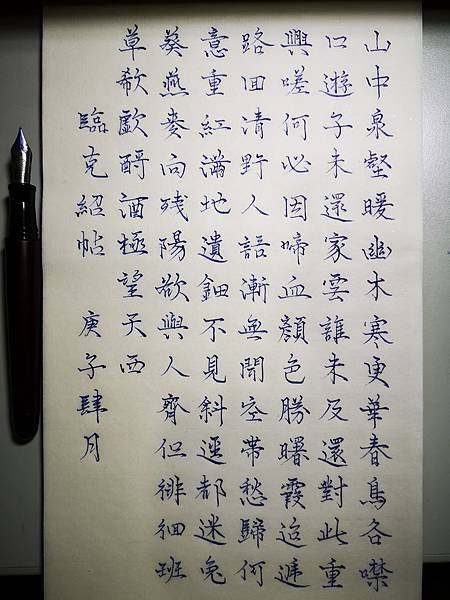 山中泉壑暖幽木寒更華春鳥各噤
口遊子未還家雲誰未及還對此重
興嗟何必因啼血顏色勝曙霞迢遞
路回清野人語漸無聞空帶愁歸何
意重紅滿地遺鈿不見斜逕都迷兔
葵燕麥向殘陽欲與人齊但徘徊班
草欷歔酹酒極望天西
臨克紹帖 庚子肆月